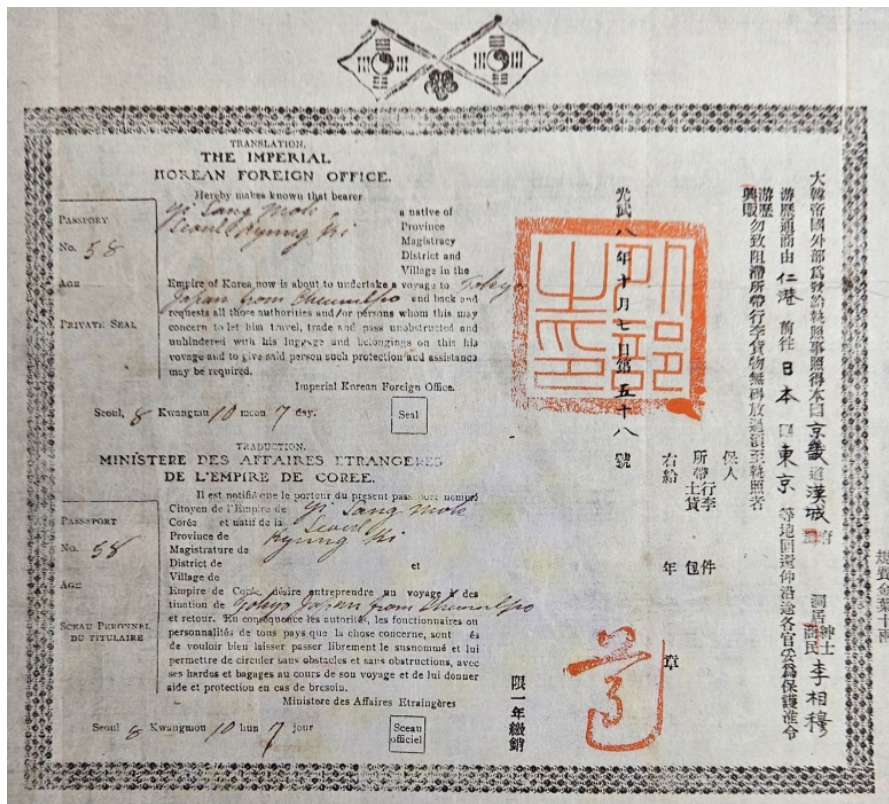 TRANSLATION.
THE IMPERIAL
KOREAN FOREIGN OFFICE.
Hereby makes known that bearer
Yi Sang Mok
Seoul Kyung Ki
a native of
Province
Magistracy
District and
Village in the
Empire of Korea now is about to undertake a voyage to Tokyo
Japan from Chemulpo and back and
requests all those authorities and/or persons whom this may
concern to let him travel, trade and pass unobstructed and
unhindered with his luggage and belongings on this his
voyage and to give said person such protection and assistance
may be required.
Imperial Korean Foreign Office.
PASSPORT
No. 58
AGE
PRIVATE SEAL
Seoul, 8 Kwangmu 10 moon 7 day.
Seal
TRADUCTION.
MINISTERE DES AFFAIRES ETRANGERES
DE L'EMPIRE DE COREE.
Il est notifié que le porteur du présent passeport nommé
Citoyen de l'Empire de Yi Sang Mok
Corée et natif de la Seoul
Province de Kyung Ki
Magistrature de
District de et
Village de
Empire de Corée, désire entreprendre un voyage à des
tination de Tokyo Japan from Chemulpo
et retour. En conséquence les autorités, les fonctionaires ou
personnalités de tous pays que la chose concerne, sont és
de vouloir bien laisser passer librement le susnommé et lui
permettre de circuler sans obstacles et sans obstructions, avec
ses hardes et bagages au cours de son voyage et de lui donner
aide et protection en cas de bresoin.
Ministore des Affaires Etraingères
PASSPORT
No. 58
AGE
SCEAU PERONNEL
DU TITULAIRE
Seoul 8 Kwangmou 10 lun 7 jour
Sceau
officiel
大韓帝國外部爲發給執照事照得本國京畿道漢城府 洞居紳士商民李相穆
游歷通商由仁港前往日本國東京等地回還仰沿途各官公爲保護准令
游歷興販勿致阻滯所帶行李貨物無碍放過須至執照者
保人
所帶行李土貨 件包
右給 年 章
光武八年十月七日第五十八號
外部之印
限一年繳銷
規費金葉十兩